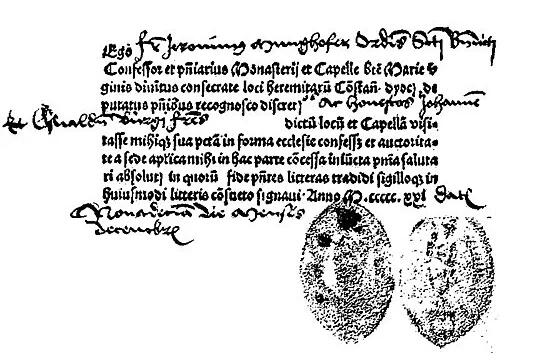 Ego fr Jeronimus Munghofer Ordis Scti Bndicti
Confessor et pñiarius Monasterij et Capelle bte Marie v
ginis diuinitus consecrate loci heremitarũ Cõstañ. dyoc. de
putatus pñibus recognosco discret os Ac honestos Johannē
et Oswaldū Burgi frēs dictũ locũ et Capellã visi
tasse mihiqz sua pctã in forma ecclesie confessos et auctorita-
te a sede aplica mihi in hac parte cõcessa iniũcta pnĩa saluta
ri absolui in quorũ fide pñtes litteras tradidi sigilloqz in
huiusmodi litteris cõsueto signaui. Anno M.ccccc.xxi Datē
Die Mensis
decembris